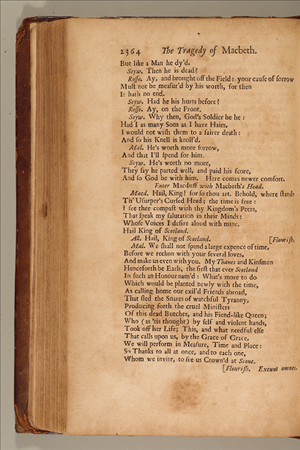 2364 The Tragedy of Macbeth.
But like a Man he dy'd.
Seyw. Then he is dead?
Rosse. Ay, and brought off the Field: your cause of sorrow
Must not be measur'd by his worth, for then
It hath no end.
Seyw. Had he his hurts before?
Rosse. Ay, on the Front.
Seyw. Why then, God's Soldier be he:
Had I as many Sons as I have Hairs,
I would not wish them to a fairer death:
And so his Knell is knoll'd.
Mal. He's worth more sorrow,
And that I'll spend for him.
Seyw. He's worth no more,
They say he parted well, and paid his score,
And so God be with him. Here comes newer comfort.
Enter Macduff with Macbeth's Head.
Macd. Hail, King! for so thou art. Behold, where stands
Th' Usurper's Cursed Head; the time is free:
I see thee compast with thy Kingdom's Peers,
That speak my salutation in their Minds:
Whose Voices I desire aloud with mine.
Hail King of Scotland.
All. Hail, King of Scotland. [Flourish.
Mal. We shall not spend a large expence of time,
Before we reckon with your several loves,
And make us even with you. My Thanes and Kinsmen
Henceforth be Earls, the first that ever Scotland
In such an Honour nam'd: What's more to do
Which would be planted newly with the time,
As calling home our exil'd Friends abroad,
That fled the Snares of watchful Tyranny,
Producing forth the cruel Ministers
Of this dead Butcher, and his Fiend-like Queen;
Who (as 'tis thought) by self and violent hands,
Took off her Life; This, and what needful else
That calls upon us, by the Grace of Grace,
We will perform in Measure, Time and Place:
So Thanks to all at once, and to each one,
Whom we invite, to see us Crown'd at Scone.
[Flourish. Exeunt omnes.